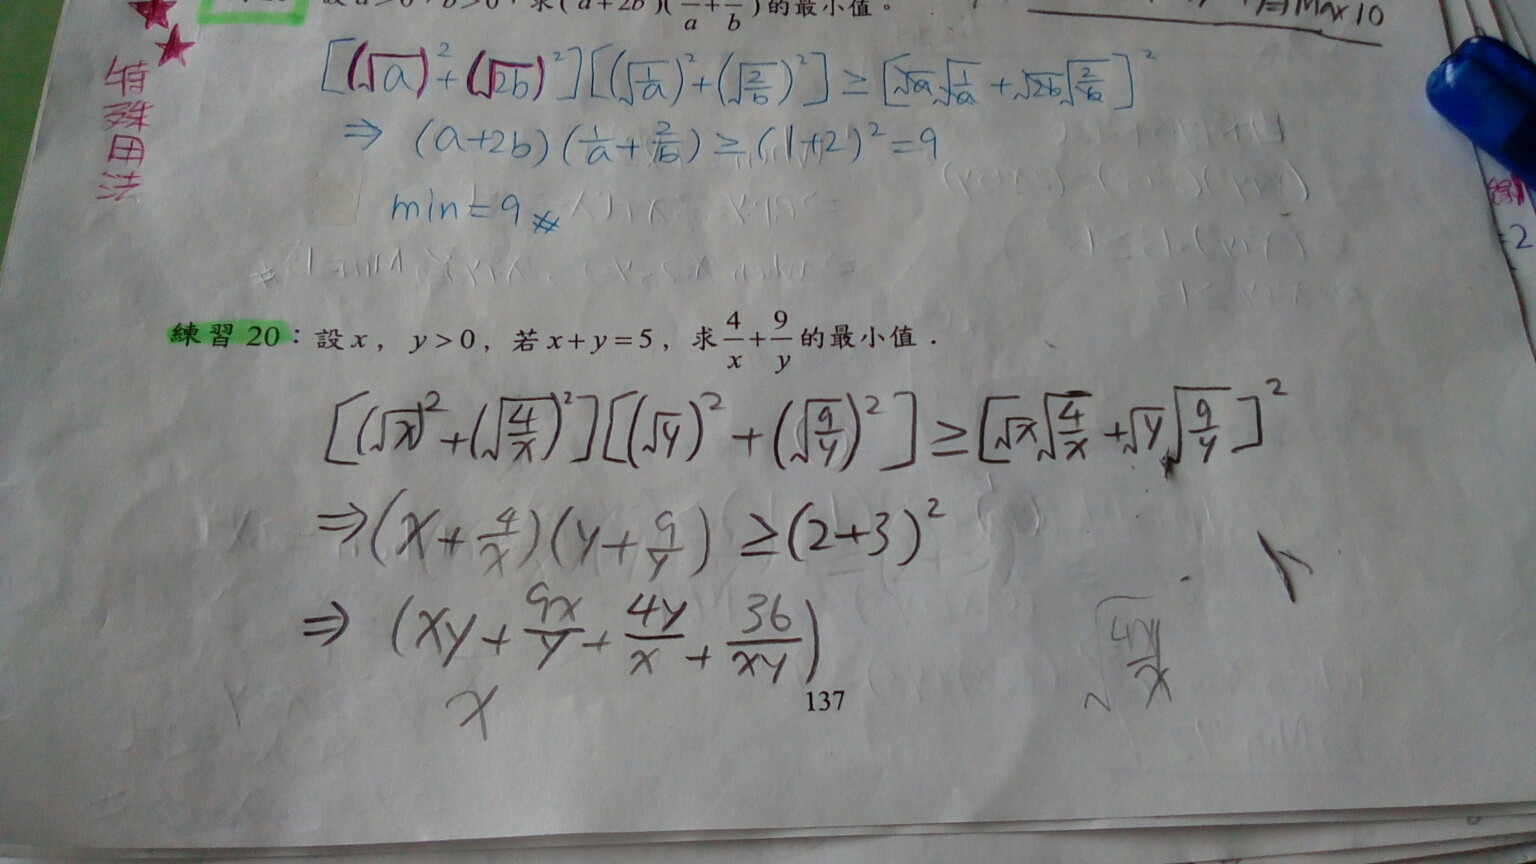 設a>0,b>0,求(a+2b)(1/a+2/b)的最小值。
⇒Max 10
特殊用法
[(√a)²+(√2b)²][(√1/a)²+(√2/b)²]≥[√a√1/a+√2b√2/b]²
⇒(a+2b)(1/a+2/b)≥(1+2)²=9
min=9#
=2
練習20:設x,y>0,若x+y=5,求4/x+9/y的最小值.
[(√x)²+(√4/x)²][(√y)²+(√9/y)²]≥[√x√4/x+√y√9/y]²
⇒(x+4/x)(y+9/y)≥(2+3)²
⇒(xy+9x/y+4y/x+36/xy)
x
137